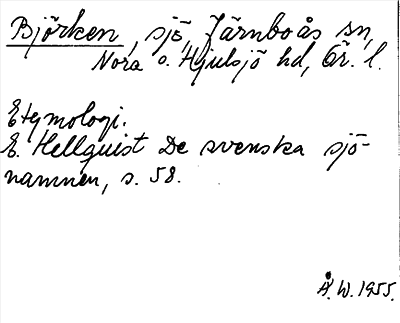 Björken, sjö, Järnboås sn,
Nora o. Hjulsjö hd, Ör. l.
Etymologi.
E. Hellquist De svenska sjö-
namnen, s. 58.
Å. W. 1955.